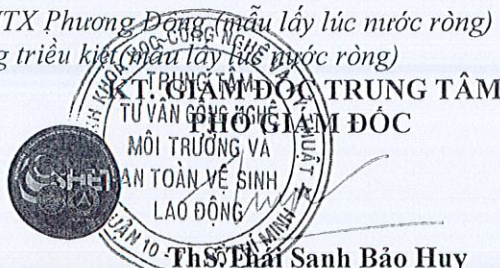 TX Phương Đông (mẫu lấy lúc nước ròng)
g triều kiệt (mẫu lấy lúc nước ròng)
KT. GIÁM ĐỐC TRUNG TÂM
PHÓ GIÁM ĐỐC
KHOA HỌC CÔNG NGHỆ VÀ KỸ THUẬT
TRUNG TÂM
TƯ VẤN CÔNG NGHỆ
MÔI TRƯỜNG VÀ
AN TOÀN VỆ SINH
LAO ĐỘNG
QUẬN 10 - HỒ CHÍ MINH
COSHET
ThS. Thái Sanh Bảo Huy